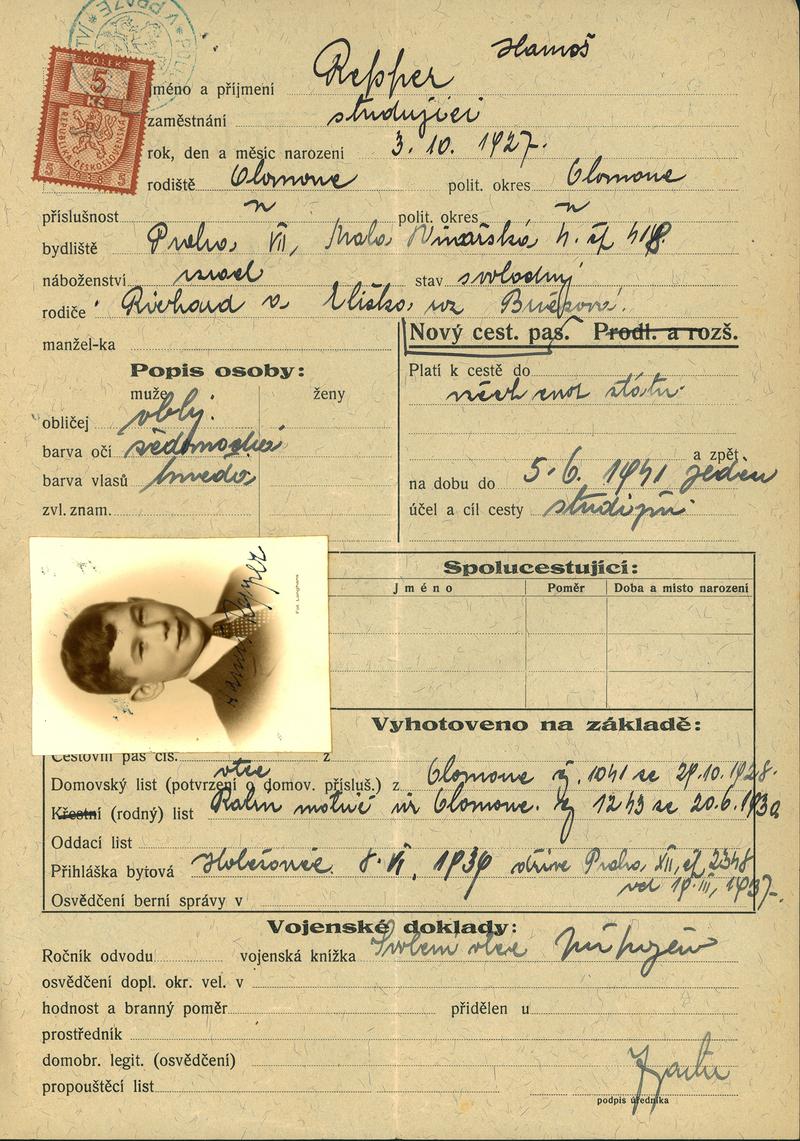 Hanuš
KOLEK
5
Kč
REPUBLIKA ČESKOSLOVENSKÁ
5 5
jméno a příjmení Repper
zaměstnání studující
rok, den a měsíc narození 3. 10. 1927.
rodiště Olomouc polit. okres Olomouc
příslušnost " polit. okres "
bydliště Praha VII, Malá Vinařská č. 418.
náboženství israel stav svobodný
rodiče Richard a Eliška roz
manžel-ka
Nový cest. pas. Prodl. a rozš.
Popis osoby:
muže ženy
obličej oblý.
barva očí šedomodrá
barva vlasů hnědá
zvl. znam.
Platí k cestě do
všech států
a zpět
na dobu do 5. 6. 1941 jeden
účel a cíl cesty studijní
Spolucestující:
Jméno Poměr Doba a místo narození
Hanuš Repper
Fot. Langhans
Vyhotoveno na základě:
Cestovní pas čís. z
Domovský list (potvrzení o domov. přísluš.) z otce Olomouc čj. 1041 ze 29. 10. 1928.
Křestní (rodný) list Olomouc. čj 1243 ze 20. 6. 1939
Oddací list
Přihláška bytová Holešovice. 8. VI. 1939 dříve Praha XII, čp 2348
od 19. III. 1937.
Osvědčení berní správy v
Vojenské doklady:
Ročník odvodu vojenská knížka Svolení otce připojeno
osvědčení dopl. okr. vel. v
hodnost a branný poměr přidělen u
prostředník
domobr. legit. (osvědčení)
propouštěcí list
podpis úředníka